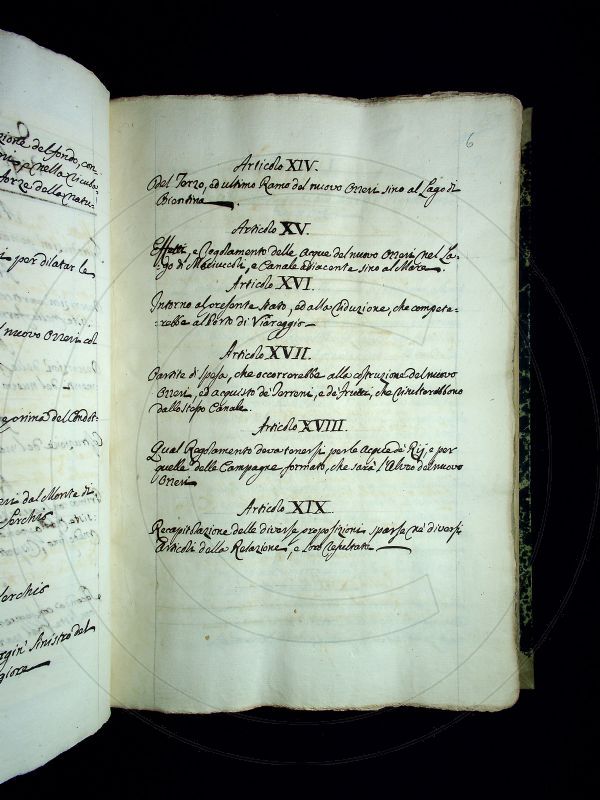 zione del fondo, con-
forze della natu-
i per dilatar le
l nuovo Ozzeri col
e prima del Condot-
eri dal Monte di
Serchio
Serchio
argin' sinistro del
giore
6
Articolo XIV.
Del Terzo, ed ultimo Ramo del nuovo Ozzeri sino al Lago di
Bientina
Articolo XV.
Effetti, e Regolamento delle Acque del nuovo Ozzeri nel La-
go di Maciuccoli, e Canale adiacente sino al Mare
Articolo XVI.
Intorno al presente stato, ed alla riduzione, che compete-
-rebbe al Porto di Viareggio
Articolo XVII.
Partite di spesa, che occorrerebbe alla costruzione del nuovo
Ozzeri, ed acquisto de' Terreni, e de' frutti, che risulterebbono
dallo stesso Canale.
Articolo XVIII.
Qual Regolamento deva tenersi per le Acque de' Rij, e per
quelle delle Campagne formato, che sarà l'Alveo del nuovo
Ozzeri
Articolo XIX.
Recapitolazione delle diverse proposizioni sparse ne' diversi
Articoli della Relazione, e loro resultato